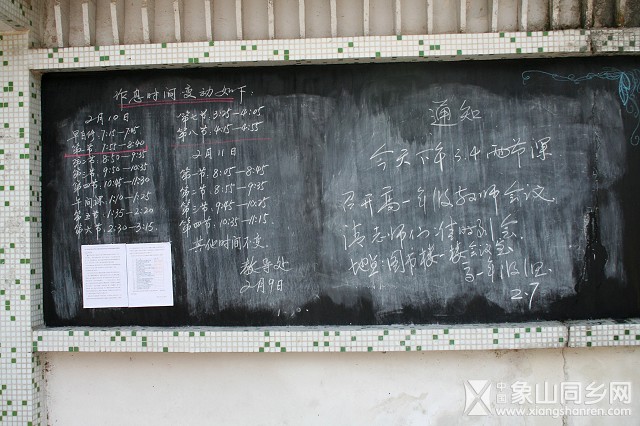 作息时间变动如下:
2月10日
早自修:7:15—7:45
第一节:7:55—8:40
第二节:8:50—9:35
第三节:9:50—10:35
第四节:10:45—11:30
午间课:1:10—1:25
第五节:1:35—2:20
第六节:2:30—3:15.
第七节:3:25—4:05
第八节:4:15—4:55
2月11日
第一节:8:05—8:45
第二节:8:55—9:35
第三节:9:45—10:25
第四节:10:35—11:15.
其他时间不变.
教导处
2月9日
通知
今天下午3.4两节课
召开高一年级教师会议
请老师们准时到会.
地点:图书楼一楼会议室
高一年级组
2.7
中国
象山同乡网
www.xiangshanren.com